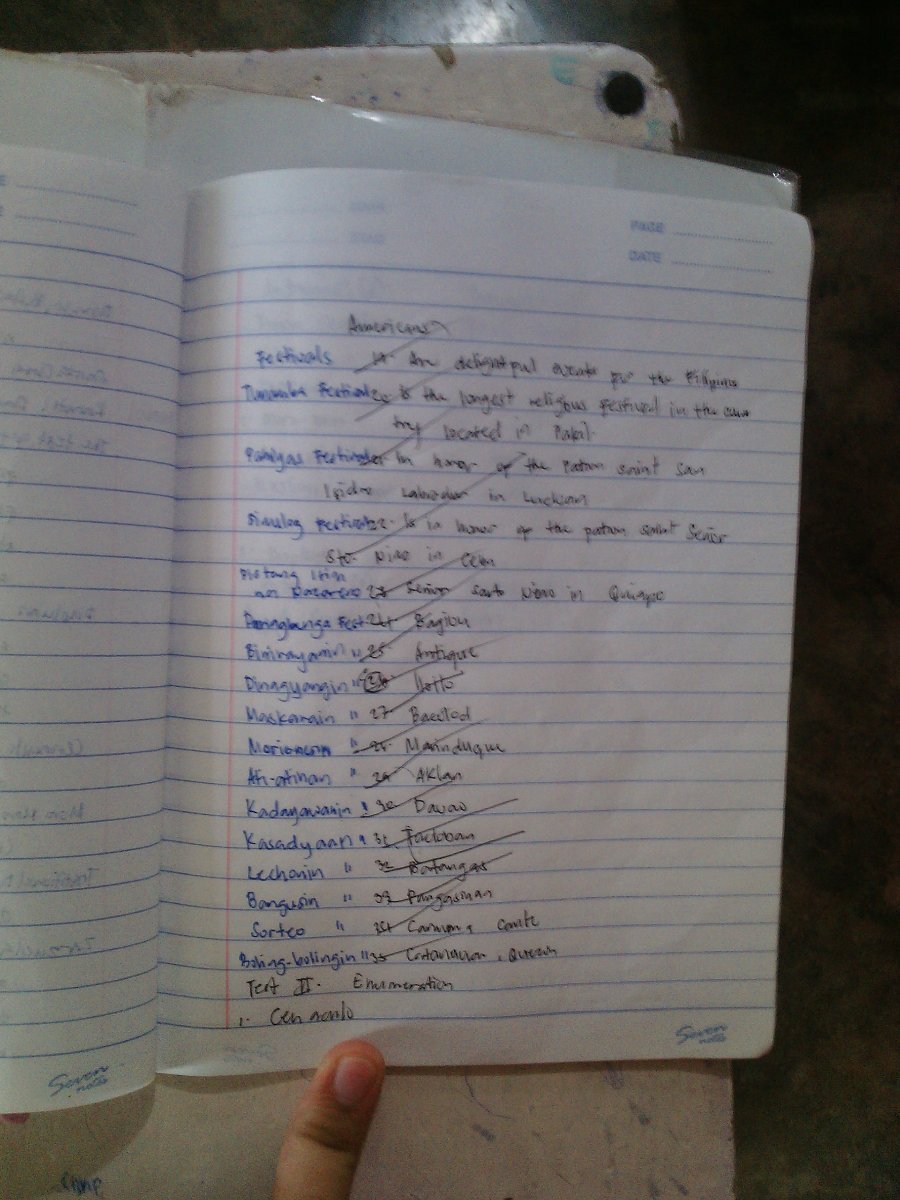 PAGE
DATE
Americans
Festivals 19. Are delightful events for the Filipinos
Festival 20 is the longest religious festival in the coun
try located in Pakil.
Pahiyas Festival in honor of the patron saint San
Isidro Labrador in Lucban
Sinulog Festival 22. Is in honor of the patron saint Señor
Sto. Nino in Cebu
Pistang Itim
na Nazareno 23 Señor santo Nino in Quiapo
Panagbenga Fest 24 Bagiou
Binirayanin " 25 Antique
Dinagyangin " 26 Iloilo
Maskarain " 27 Bacolod
Morionesin " 28 Marinduque
Ati-atihan " 29 Aklan
Kadayawanin " 30 Davao
Kasadyaan " 31 Tacloban
Lechonin " 32 Batangas
Bangusin " 33 Pangasinan
Sorteo " 34 Carmona, Cavite
Boling-bolingin " 35 Catanauan, Quezon
Test II. Enumeration
1. Cenaculo
Seven
notes
Seven
notes